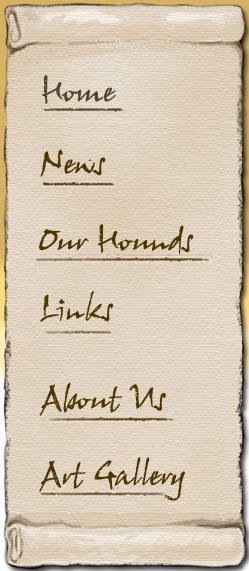 Home
News
Our Hounds
Links
About Us
Art Gallery